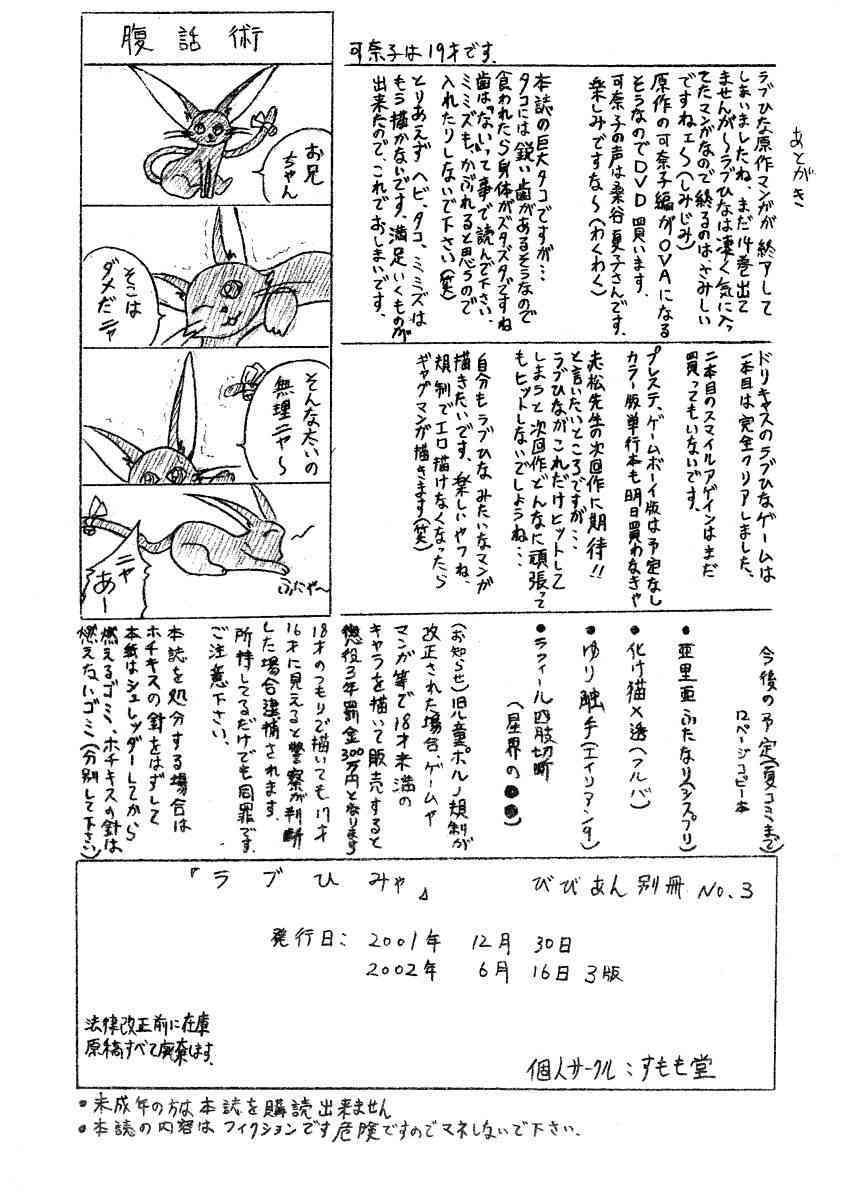 あとがき
ラブひな原作マンガが終アして
しまいましたね、まだ14巻出て
ませんが〜ラブひなは凄く気に入っ
てたマンガなので終るのは、さみしい
ですねェ〜(しみじみ)
原作の可奈子編がOVAになる
そうなのでDVD買います。
可奈子の声は桑谷夏子さんです。
楽しみですな〜(わくわく)
本誌の巨大タコですが…
タコには鋭い歯があるそうなので
食われたら身体がズタズタですね
歯は「ない」って事で読んで下さい。
ミミズも、かぶれると思うので
入れたりしないで下さい(笑)
とりあえずヘビ、タコ、ミミズは
もう描かないです。満足いくものが
出来たので、これでおしまいです。
可奈子は19才です。
ドリキャスのラブひなゲームは
一本目は完全クリアしました、
二本目のスマイルアゲインはまだ
買ってもいないです。
プレステ、ゲームボーイ版は予定なし
カラー版単行本も明日買わなきゃ
赤松先生の次回作に期待!!
と言いたいところですが…
ラブひながこれだけヒットして
しまうと次回作どんなに頑張って
もヒットしないでしょうね…
自分もラブひなみたいなマンガ
描きたいです、楽しいやつね、
規制でエロ描けなくなったら
ギャグマンガ描きます(笑)
今後の予定(夏コミまで)
12ページコピー本
●亜里亜ふたなり(シスプリ)
●化け猫×透(フルバ)
●ゆり触手(エイリアン9)
●ラフィール四肢切断
(星界の●●)
(お知らせ)児童ポルノ規制が
改正された場合、ゲームや
マンガ等で18才未満の
キャラを描いて販売すると
懲役3年罰金300万円となります
18才のつもりで描いても17才
16才に見えると警察が判断
した場合逮捕されます。
所持してるだけでも同罪です。
ご注意下さい。
本誌を処分する場合は
ホチキスの針をはずして
本紙はシュレッダーしてから
燃えるゴミ、ホチキスの針は
燃えないゴミ(分別して下さい)
腹話術
お兄
ちゃん
そこは
ダメだニャ
そんな太いの
無理ニャ〜
ニャ
あー
ふにゃ〜
『ラブひみゃ』 びびあん別冊 No.3
発行日: 2001年 12月 30日
2002年 6月 16日 3版
法律改正前に在庫
原稿すべて廃棄します。
個人サークル:すもも堂
●未成年の方は本誌を購読出来ません
●本誌の内容はフィクションです危険ですのでマネしないで下さい.